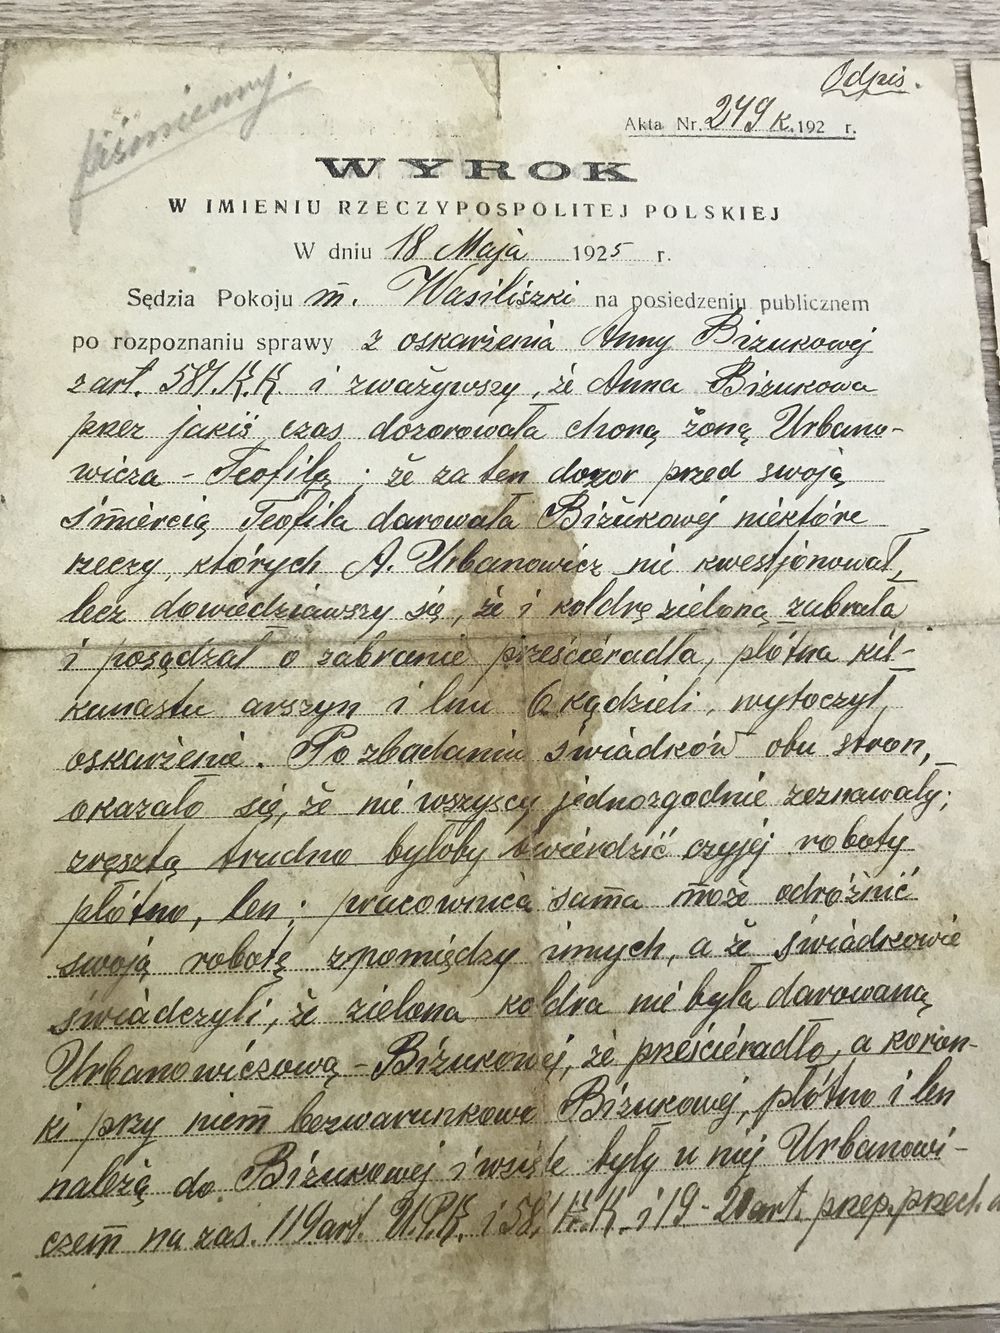 Odpis.
piśmienny.
Akta Nr. 249 K. 192 r.
WYROK
W IMIENIU RZECZYPOSPOLITEJ POLSKIEJ
W dniu 18 Maja 1925 r.
Sędzia Pokoju m. Wasiliszki na posiedzeniu publicznem
po rozpoznaniu sprawy z oskarżenia Anny Biżukowej
z art. 581. K.K. i zważywszy, że Anna Biżukowa
przez jakiś czas dozorowała chorą żoną Urbano-
wicza - Teofilą; że za ten dozor przed swoją
śmiercią Teofila darowała Biżukowej niektóre
rzeczy, których A. Urbanowicz nie kwestjonował,
lecz dowiedziawszy się, że i kołdrę zieloną zabrała
i posądzał o zabranie prześcieradła, płótna kil-
kunastu arszyn i lnu 6 kądzieli, wytoczył
oskarżenie. Po zbadaniu świadków obu stron,
okazało się, że nie wszyscy jednozgodnie zeznawały;
zresztą trudno byłoby twierdzić czyjej roboty
płótno, len; pracownica sama może odróżnić
swoją robotę zpomiędzy innych, a że świadkowie
świadczyli, że zielona kołdra nie była darowaną
Urbanowiczową - Biżukowej, że prześcieradło, a koron-
ki przy niem bezwarunkowo Biżukowej, płótno i len
należą do Biżukowej i wzięte były u niej Urbanowi-
czem na zas. 119 art. U.P.K. i 581 K.K. i 19-21 art. przep. przech.